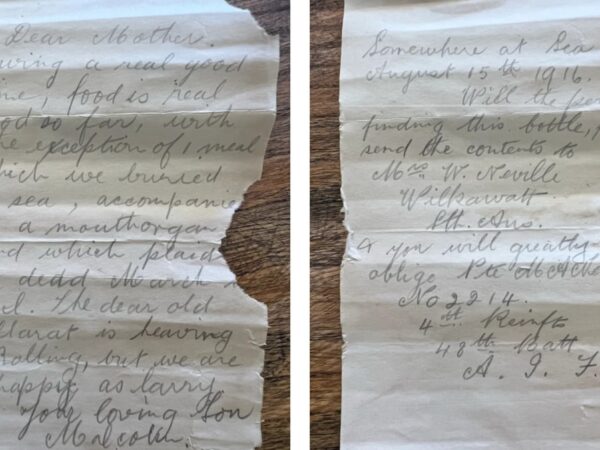 Dear Mother.
aving a real good
me, food is real
od so far, with
he exception of 1 meal
hich we buried
sea, accompanie
a mouthorgan
nd which plaid
dead March
l. The dear old
llarat is heaving
Rolling, but we are
happy as larry
Your loving Son
Malcolm.
Somewhere at Sea
August 15th 1916.
Will the
finding this bottle,
send the contents to
Mrs W. Neville
Wilkawatt
Sth. Aus.
& you will greatly
oblige Pte
No 2214.
4th Reinfts
48th Batt
A. I. F.